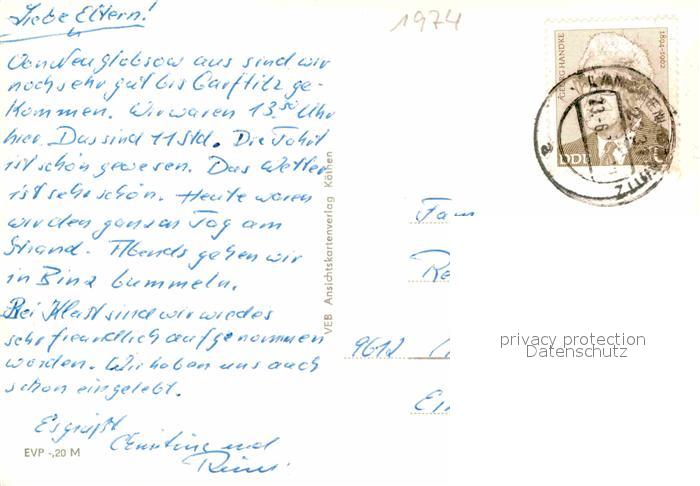 Liebe Eltern!
1974
Von Neuglobsow aus sind wir
noch sehr gut bis Garftitz ge-
kommen. Wir waren 13.50 Uhr
hier. Das sind 11 Std. Die Fahrt
ist schön gewesen. Das Wetter
ist sehr schön. Heute waren
wir den ganzen Tag am
Strand. Abends gehen wir
in Binz bummeln.
Bei Klast sind wir wieder
sehr freundlich aufgenommen
worden. Wir haben uns auch
schon eingelebt.
Es grüßt
Christine und
EVP -,20 M
VEB Ansichtskartenverlag Köthen
GEORG HANDKE
1894-1962
DDR
Fam
9612
privacy protection
Datenschutz